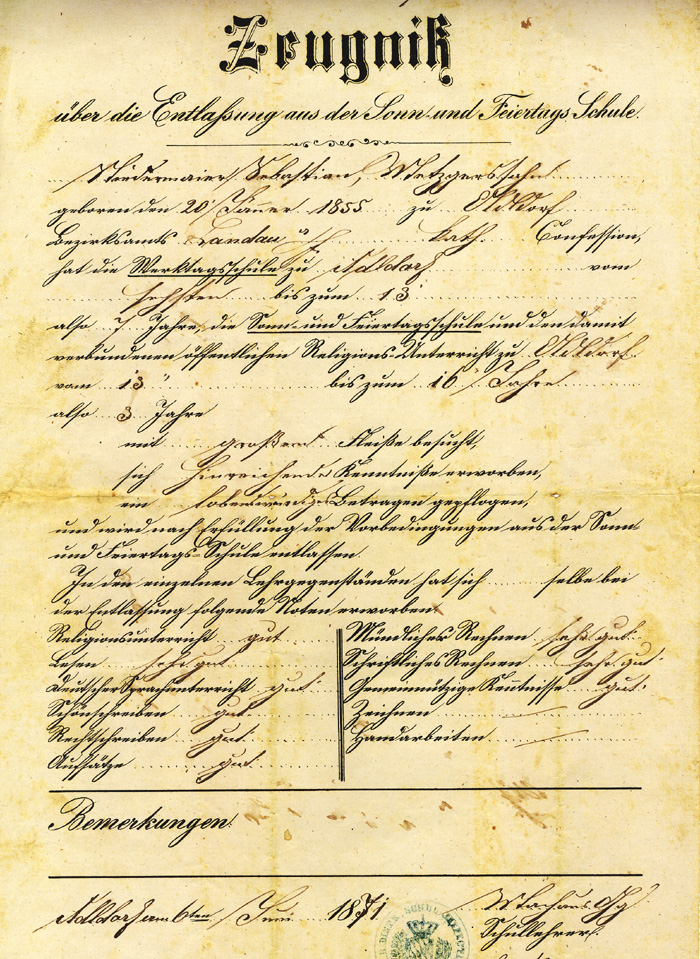 Zeugniß
über die Entlaßung aus der Sonn- und Feiertags Schule.
Niedermaier Sebastian, Metzgerssohn
geboren den 20 Jänner 1855 zu Adldorf
Bezirksamts Landau a/I kath. Confession,
hat die Werktagsschule zu Adldorf vom
sechsten bis zum 13
also 7 Jahre, die Sonn- und Feiertagsschule und den damit
verbundenen öffentlichen Religions-Unterricht zu Adldorf
vom 13 bis zum 16 Jahre
also 3 Jahre
mit großem Fleiße besucht,
sich hinreichende Kenntniße erworben,
ein lobenswürdiges Betragen gepflogen,
und wird nach Erfüllung der Vorbedingungen aus der Sonn-
und Feiertags-Schule entlassen.
In den einzelnen Lehrgegenständen hat sich selbe bei
der Entlassung folgende Noten erworben:
Religionsunterricht gut
Lesen sehr gut
Deutscher Sprachunterricht gut
Schönschreiben gut
Rechtschreiben gut
Aufsätze gut
Mündliches Rechnen sehr gut
Schriftliches Rechnen sehr gut
Gemeinnützige Kentnisse gut
Zeichnen —
Handarbeiten —
Bemerkungen:
Adldorf am 6ten Juni 1871
Schullehrer.